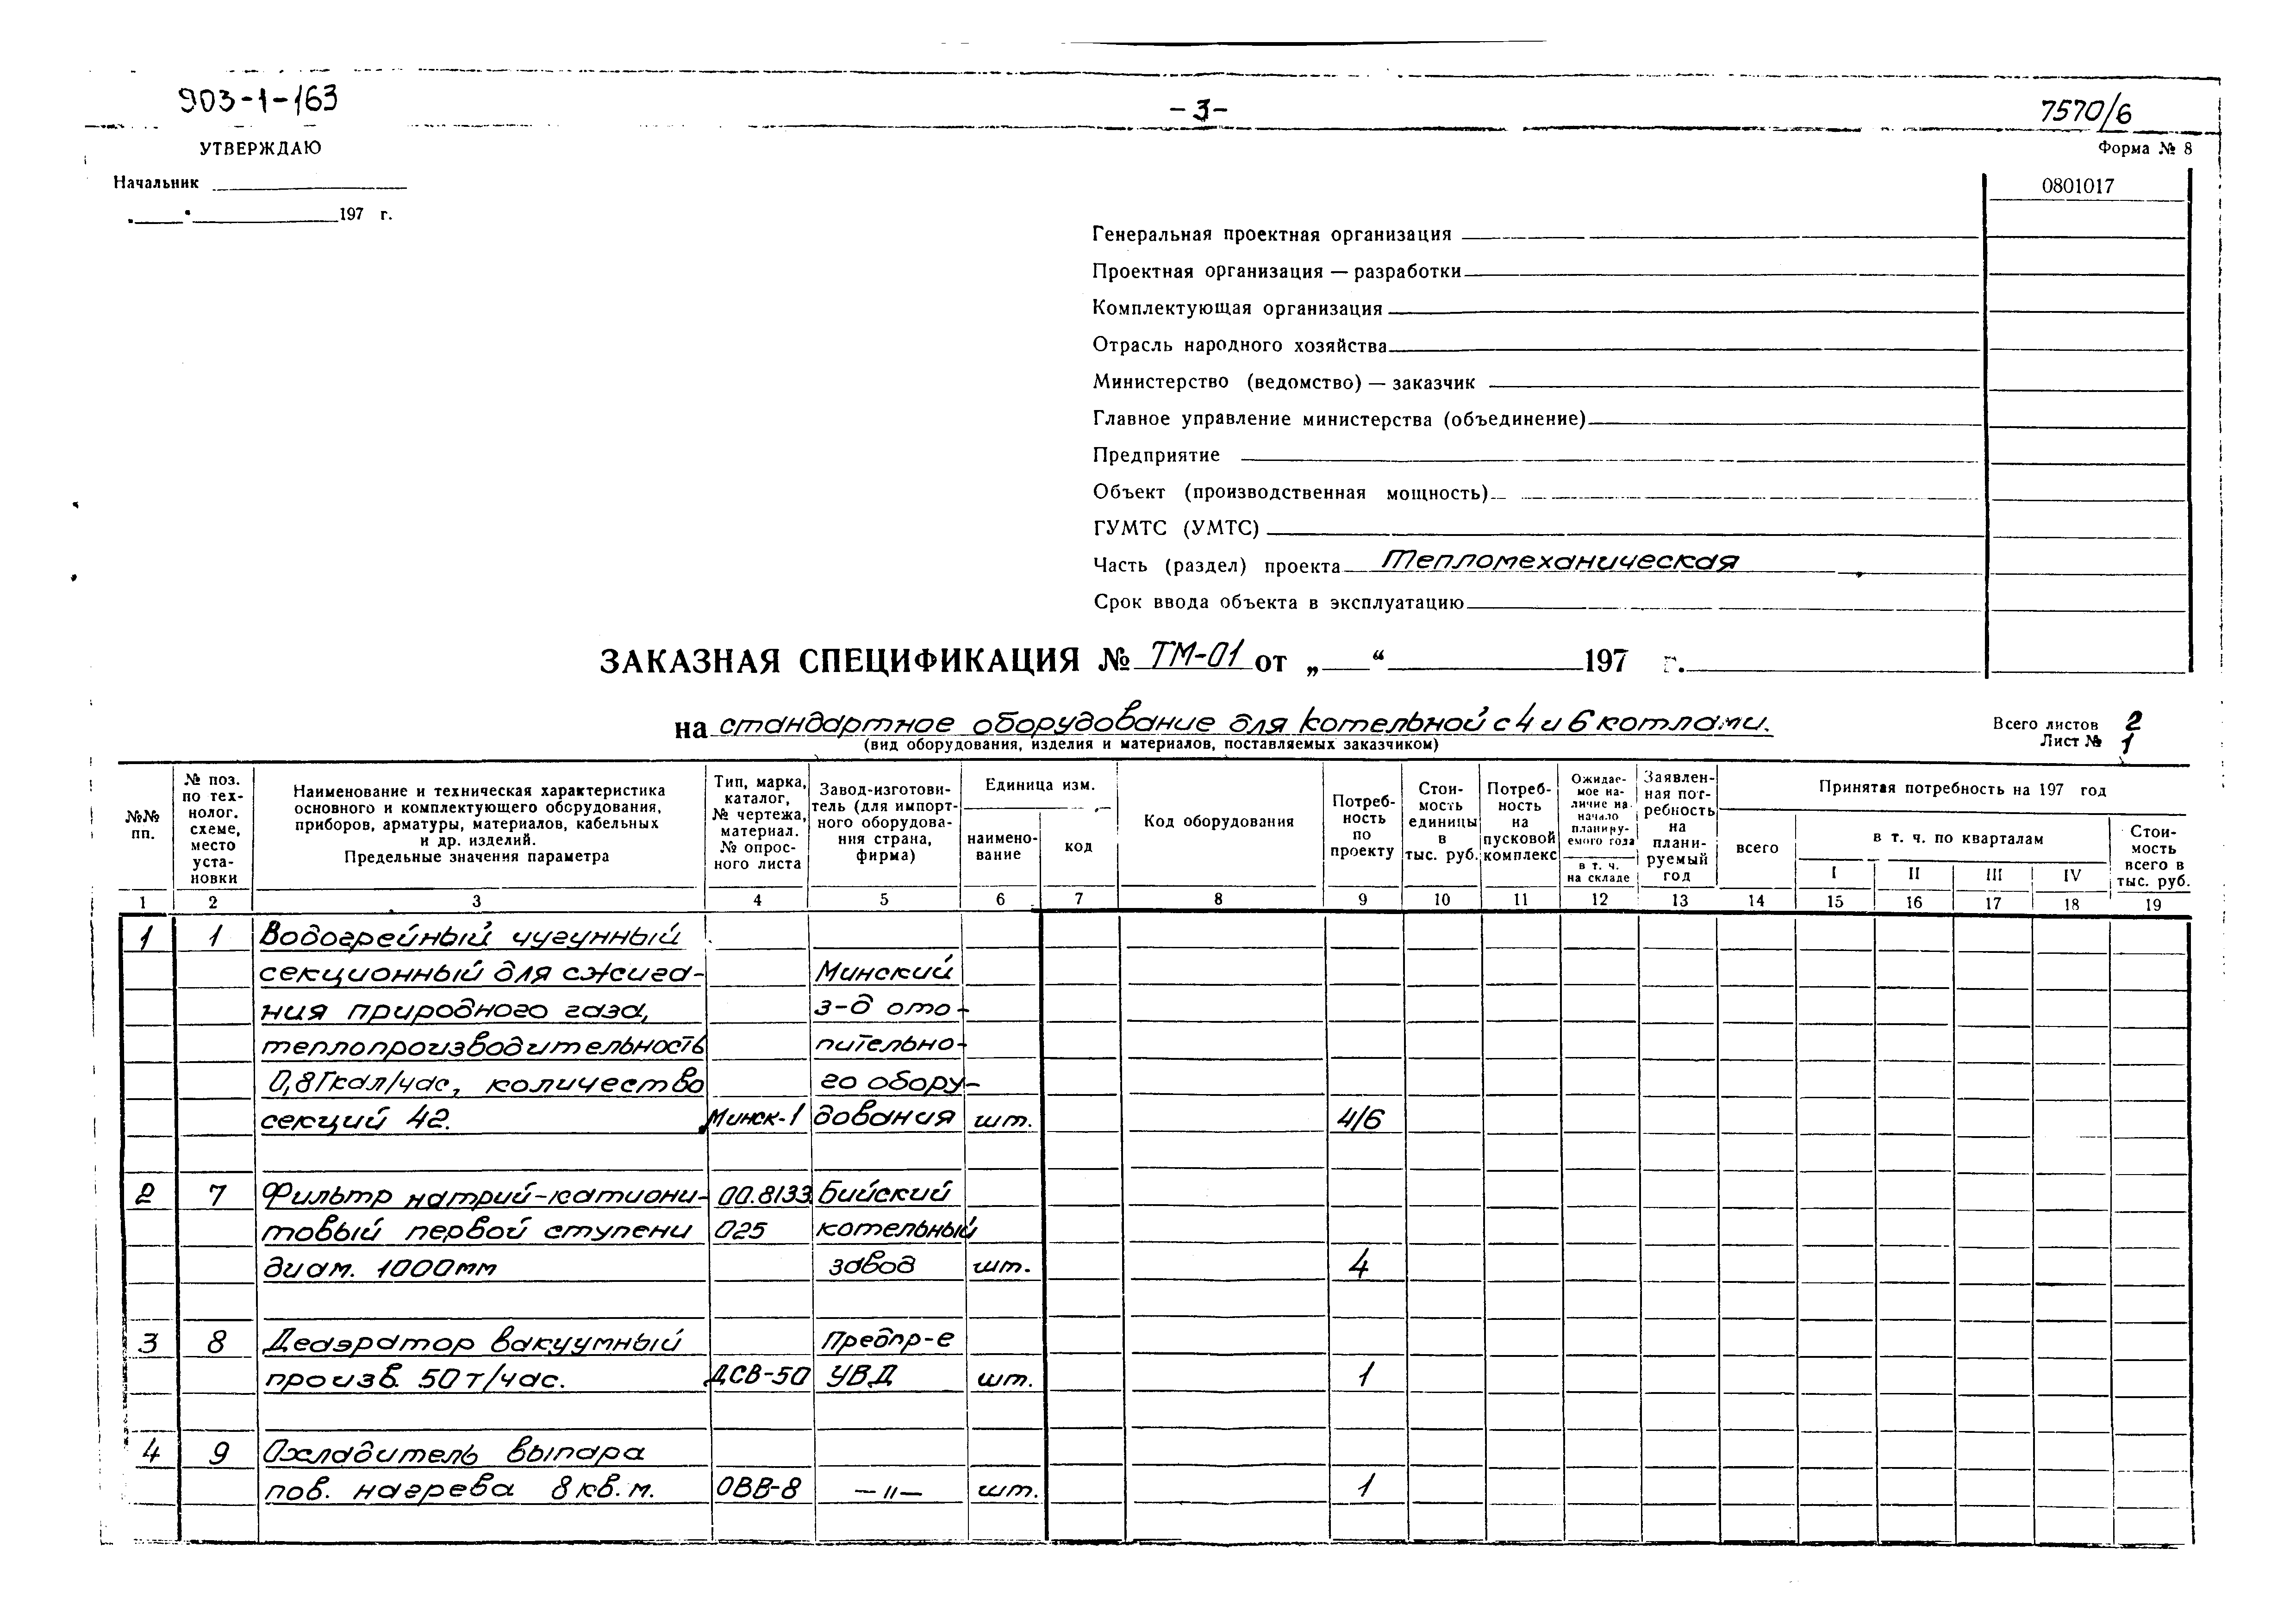 903-1-163
- 3 -
7570/6
УТВЕРЖДАЮ
Форма № 8
Начальник
0801017
„ “ 197 г.
Генеральная проектная организация
Проектная организация — разработки
Комплектующая организация
Отрасль народного хозяйства
Министерство (ведомство) — заказчик
Главное управление министерства (объединение)
Предприятие
Объект (производственная мощность)
ГУМТС (УМТС)
Часть (раздел) проекта Тепломеханическая
Срок ввода объекта в эксплуатацию
ЗАКАЗНАЯ СПЕЦИФИКАЦИЯ № ТМ-01 от „ “ 197 г.
на стандартное оборудование для котельной с 4 и 6 котлами.
(вид оборудования, изделия и материалов, поставляемых заказчиком)
Всего листов 2
Лист № 1
№№
пп.
№ поз.
по тех-
нолог.
схеме,
место
уста-
новки
Наименование и техническая характеристика
основного и комплектующего оборудования,
приборов, арматуры, материалов, кабельных
и др. изделий.
Предельные значения параметра
Тип, марка,
каталог,
№ чертежа,
материал.
№ опрос-
ного листа
Завод-изготови-
тель (для импорт-
ного оборудова-
ния страна,
фирма)
Единица изм.
наимено-
вание
код
Код оборудования
Потреб-
ность
по
проекту
Стои-
мость
единицы
в
тыс. руб.
Потреб-
ность
на
пусковой
комплекс
Ожидае-
мое на-
личие на
начало
планиру-
емого года
в т. ч.
на складе
Заявлен-
ная пот-
ребность
на
плани-
руемый
год
Принятая потребность на 197 год
всего
в т. ч. по кварталам
I II III IV
Стои-
мость
всего в
тыс. руб.
1 2 3 4 5 6 7 8 9 10 11 12 13 14 15 16 17 18 19
1 1 Водогрейный чугунный
секционный для сжига- Минский
ния природного газа, з-д ото-
теплопроизводительность пительно-
0,8 Гкал/час, количество го обору-
секций 42. Минск-1 дования шт. 4/6
2 7 Фильтр натрий-катиони- 00.8133 Бийский
товый первой ступени 025 котельный
диам. 1000мм завод шт. 4
3 8 Деаэратор вакуумный Предпр-е
произв. 50 т/час. ДСВ-50 УВД шт. 1
4 9 Охладитель выпара
пов. нагрева 8 кв. м. ОВВ-8 —"— шт. 1